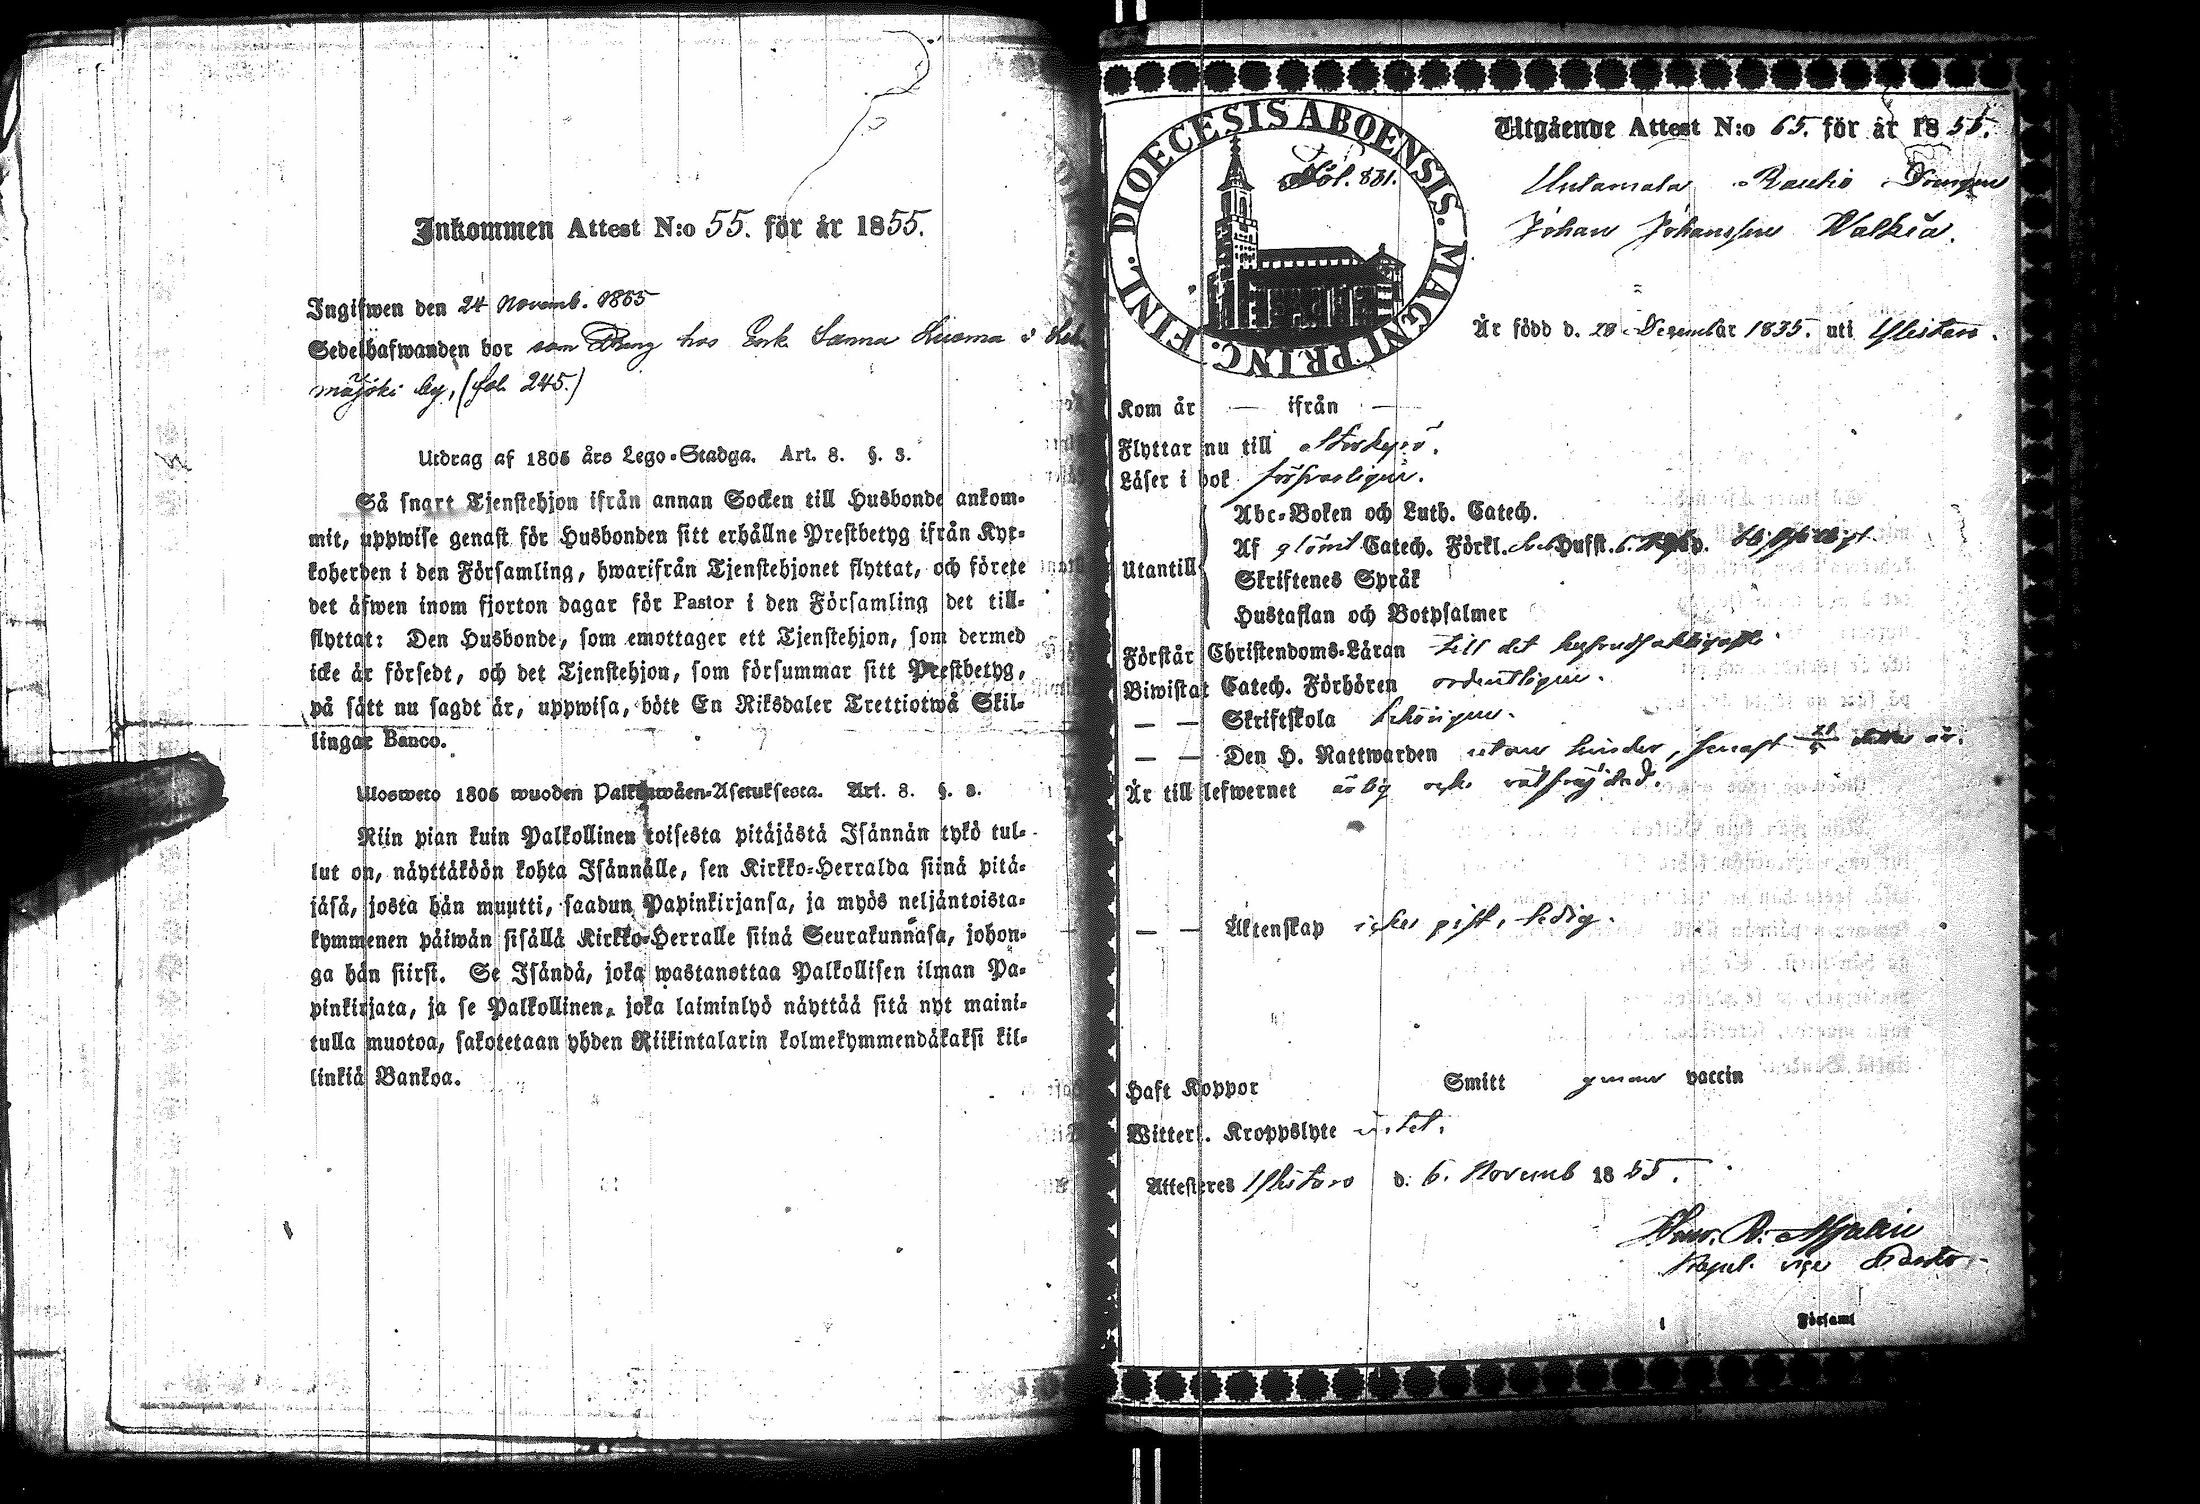 Inkommen Attest N:o 55. för år 1855.
Ingifwen den 24 Novemb. 1855
Sedelhafwanden bor som Dräng hos Enk. Sanna Luoma i
mäjöki by, (fol. 245.)
Utdrag af 1805 års Lego-Stadga. Art. 8. §. 3.
Så snart Tjenstehjon ifrån annan Socken till Husbonde ankom-
mit, uppwise genast för Husbonden sitt erhållne Prestbetyg ifrån Kyr-
koherden i den Församling, hwarifrån Tjenstehjonet flyttat, och förete
det äfwen inom fjorton dagar för Pastor i den Församling det till-
flyttat: Den Husbonde, som emottager ett Tjenstehjon, som dermed
icke är försedt, och det Tjenstehjon, som försummar sitt Prestbetyg,
på sätt nu sagdt är, uppwisa, böte En Riksdaler Trettiotwå Skil-
lingar Banco.
Ulosweto 1805 wuoden Palkkawäen-Asetuksesta. Art. 8. §. 3.
Niin pian kuin Palkollinen toisesta pitäjästä Isännän tykö tul-
lut on, näyttäköön kohta Isännälle, sen Kirkko-Herralda siinä pitä-
jäsä, josta hän muutti, saadun Papinkirjansa, ja myös neljäntoista-
kymmenen päiwän sisällä Kirkko-Herralle siinä Seurakunnasa, johon-
ga hän siirsi. Se Isändä, joka wastanottaa Palkollisen ilman Pa-
pinkirjata, ja se Palkollinen, joka laiminlyö näyttää sitä nyt maini-
tulla muotoa, sakotetaan yhden Riikintalarin kolmekymmendäkaksi kil-
linkiä Bankoa.
DIOECESIS ABOENSIS. MAGNI PRINC. FINL.
Fol. 881.
Utgående Attest N:o 65. för år 1855.
Untamala Rautio Drängen
Johan Johansson Walkia.
Är född d. 28 December 1835. uti Ylistaro.
Kom år — ifrån —
Flyttar nu till Storkyrö.
Läser i bok försvarligen.
Utantill
Abc-Boken och Luth. Catech.
Af glömt Catech. Förkl.
Skriftenes Språk
Hustaflan och Botpsalmer
Förstår Christendoms-Läran till det
Biwistat Catech. Förhören ordentligen.
— — Skriftskola behörigen.
— — Den H. Nattwarden utan hinder, senast år.
Är till lefwernet ärlig och välfrejdad.
— — Äktenskap icke gift, ledig.
Haft Koppor Smitt genom vaccin
Witterl. Kroppslyte intet.
Attesteres Ylistaro d. 6. Novemb 1855.
Kapel. vice Pastor.
1
Församl